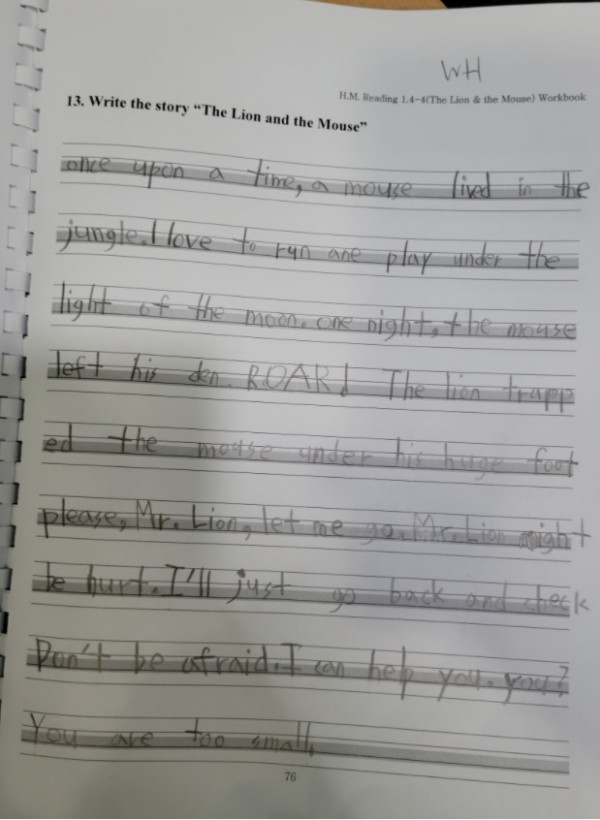 WH
H.M. Reading 1.4-4(The Lion & the Mouse) Workbook
13. Write the story “The Lion and the Mouse”
once upon a time, a mouse lived in the
jungle. I love to run ane play under the
light of the moon. one night, the mouse
left his den. ROAR! The lion trapp
ed the mouse under his huge foot
please, Mr. Lion, let me go. Mr. Lion might
be hurt. I'll just go back and check
Don't be afraid. I can help you. you?
You are too small.
76